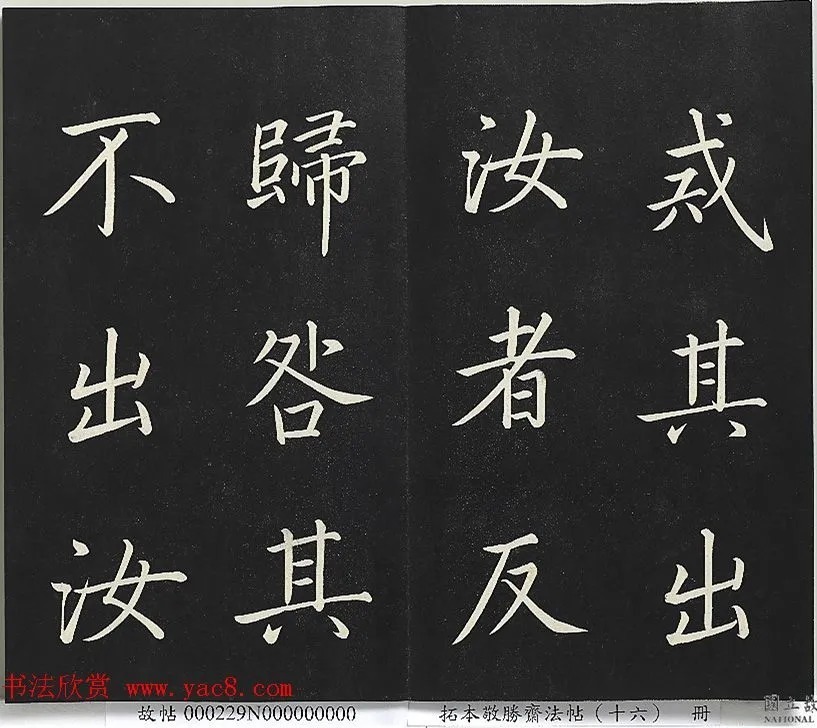 戒其出
汝者反
歸咎其
不出汝
书法欣赏 www.yac8.com
故帖 000229N000000000
拓本敬勝齋法帖（十六） 冊
NATIONAL